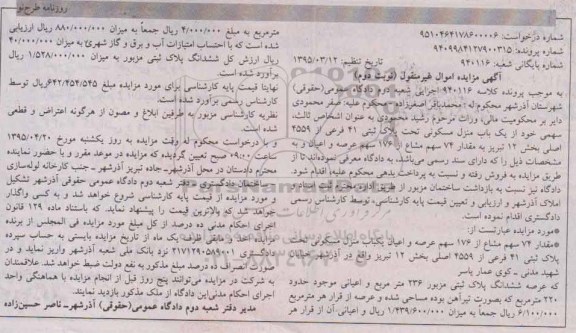 روزنامه طرح‌نو
شماره درخواست: ۹۵۱۰۴۶۴۱۷۸۶۰۰۰۰۶
شماره پرونده: ۹۴۰۹۹۸۴۱۲۷۹۰۰۳۱۵
شماره بایگانی شعبه: ۹۴۰۱۱۶
تاریخ تنظیم: ۱۳۹۵/۰۳/۱۲
آگهی مزایده اموال غیرمنقول (نوبت دوم)
به موجب پرونده کلاسه ۹۴۰۱۱۶ اجرایی شعبه دوم دادگاه عمومی(حقوقی)
شهرستان آذرشهر محکوم له: محمدباقر اصغرزاده ومحکوم علیه: صفر محمودی
دایر بر محکومیت مالی، وراث مرحوم رشید محمودی به عنوان اشخاص ثالث،
سهمی خود از یک باب منزل مسکونی تحت پلاک ثبتی ۴۱ فرعی از ۴۵۵۹
اصلی بخش ۱۲ تبریز به مقدار ۷۴ سهم مشاع از ۱۷۶ سهم عرصه و اعیان و به
مشخصات ذیل را که دارای سند رسمی می‌باشد، به دادگاه معرفی نموده‌اند تا از
طریق مزایده به فروش رفته و نسبت به پرداخت بدهی محکوم علیه، اقدام شود.
دادگاه نیز نسبت به بازداشت ساختمان مزبور از طریق
املاک آذرشهر و ارزیابی و تعیین قیمت پایه کارشناسی، توسط کارشناس رسمی
دادگستری اقدام نموده است.
*مورد مزایده عبارتست از:
*مقدار ۷۴ سهم مشاع از ۱۷۶ سهم عرصه و اعیان یکباب منزل مسکونی تحت
پلاک ثبتی ۴۱ فرعی از ۴۵۵۹ اصلی بخش ۱۲ تبریز واقع در آذرشهر خیابان
شهید مدنی ـ کوی عمار یاسر
که عرصه ششدانگ پلاک ثبتی مزبور ۲۳۶ متر مربع و اعیانی موجود حدود
۲۲۰ مترمربع که بصورت تیرآهن بوده مساحی شده و عرصه از قرار هر مترمربع
۶/۱۰۰/۰۰۰ ریال جمعاً به میزان ۱/۴۳۹/۶۰۰/۰۰۰ ریال و اعیانی، آن از قرار هر
مترمربع به مبلغ ۴/۰۰۰/۰۰۰ ریال جمعاً به میزان ۸۸۰/۰۰۰/۰۰۰ ریال ارزیابی
شده است که با احتساب امتیازات آب و برق و گاز شهری به میزان ۴۰/۰۰۰/۰۰۰
ریال ارزش کل ششدانگ پلاک ثبتی مزبور به میزان ۱/۵۲۸/۰۰۰/۰۰۰ ریال
برآورده شده است.
نهایتا قیمت پایه کارشناسی برای مورد مزایده مبلغ ۶۴۲/۴۵۴/۵۴۵ریال توسط
کارشناس رسمی برآورد شده است.
نظریه کارشناسی مزبور به طرفین ابلاغ و مصون از هرگونه اعتراض و قطعی
شده است.
و با درخواست محکوم له وقت مزایده به روز یکشنبه مورخ ۱۳۹۵/۰۴/۲۰
ساعت ۰۹:۰۰ صبح تعیین گردیده که مزایده در موعد مقرر و با حضور نماینده
محترم دادستان در محل آذرشهر- جاده تبریز آذرشهر ـ جنب کارخانه لوله‌سازی
ـ ساختمان دادگستری ـ دفتر شعبه دوم دادگاه عمومی حقوقی آذرشهر تشکیل
و مورد مزایده از قیمت پایه کارشناسی شروع خواهد شد و به کسی واگذار
خواهد شد که بالاترین قیمت را پیشنهاد نماید. که باستناد ماده ۱۲۹ قانون
اجرای احکام مدنی ده درصد از کل مبلغ مورد مزایده فی المجلس از برنده
مزایده اخذ و مابقی ظرف یک ماه از تاریخ مزایده بایستی به حساب سپرده
دادگستری ۲۱۷۱۲۹۰۵۸۹۰۰۱ نزد بانک ملی شعبه آذرشهر واریز نماید و در
صورت انصراف ده درصد مبلغ مذکور به نفع دولت ضبط خواهد شد. علاقمندان
به شرکت در مزایده می‌توانند پنج روز قبل از انجام مزایده با هماهنگی واحد
اجرای احکام مدنی‌این دادگاه از ملک مذکور بازدید نمایند.
مدیر دفتر شعبه دوم دادگاه عمومی(حقوقی) آذرشهر- ناصر حسین‌زاده